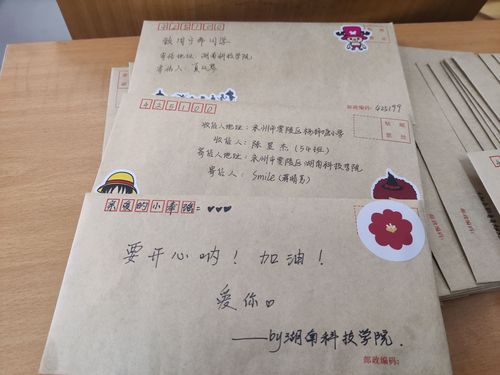 寄信地址：湖南科技学院
寄信人：
邮政编码：425199
425100
收信人地址：永州市零陵区杨梓塘小学
收信人：陈昱杰（54班）
寄信人地址：永州市零陵区湖南科技学院
寄信人：Smile
亲爱的小幸福：♥♥♥
要开心呐！加油！
爱你♡
——by湖南科技学院.
邮政编码：